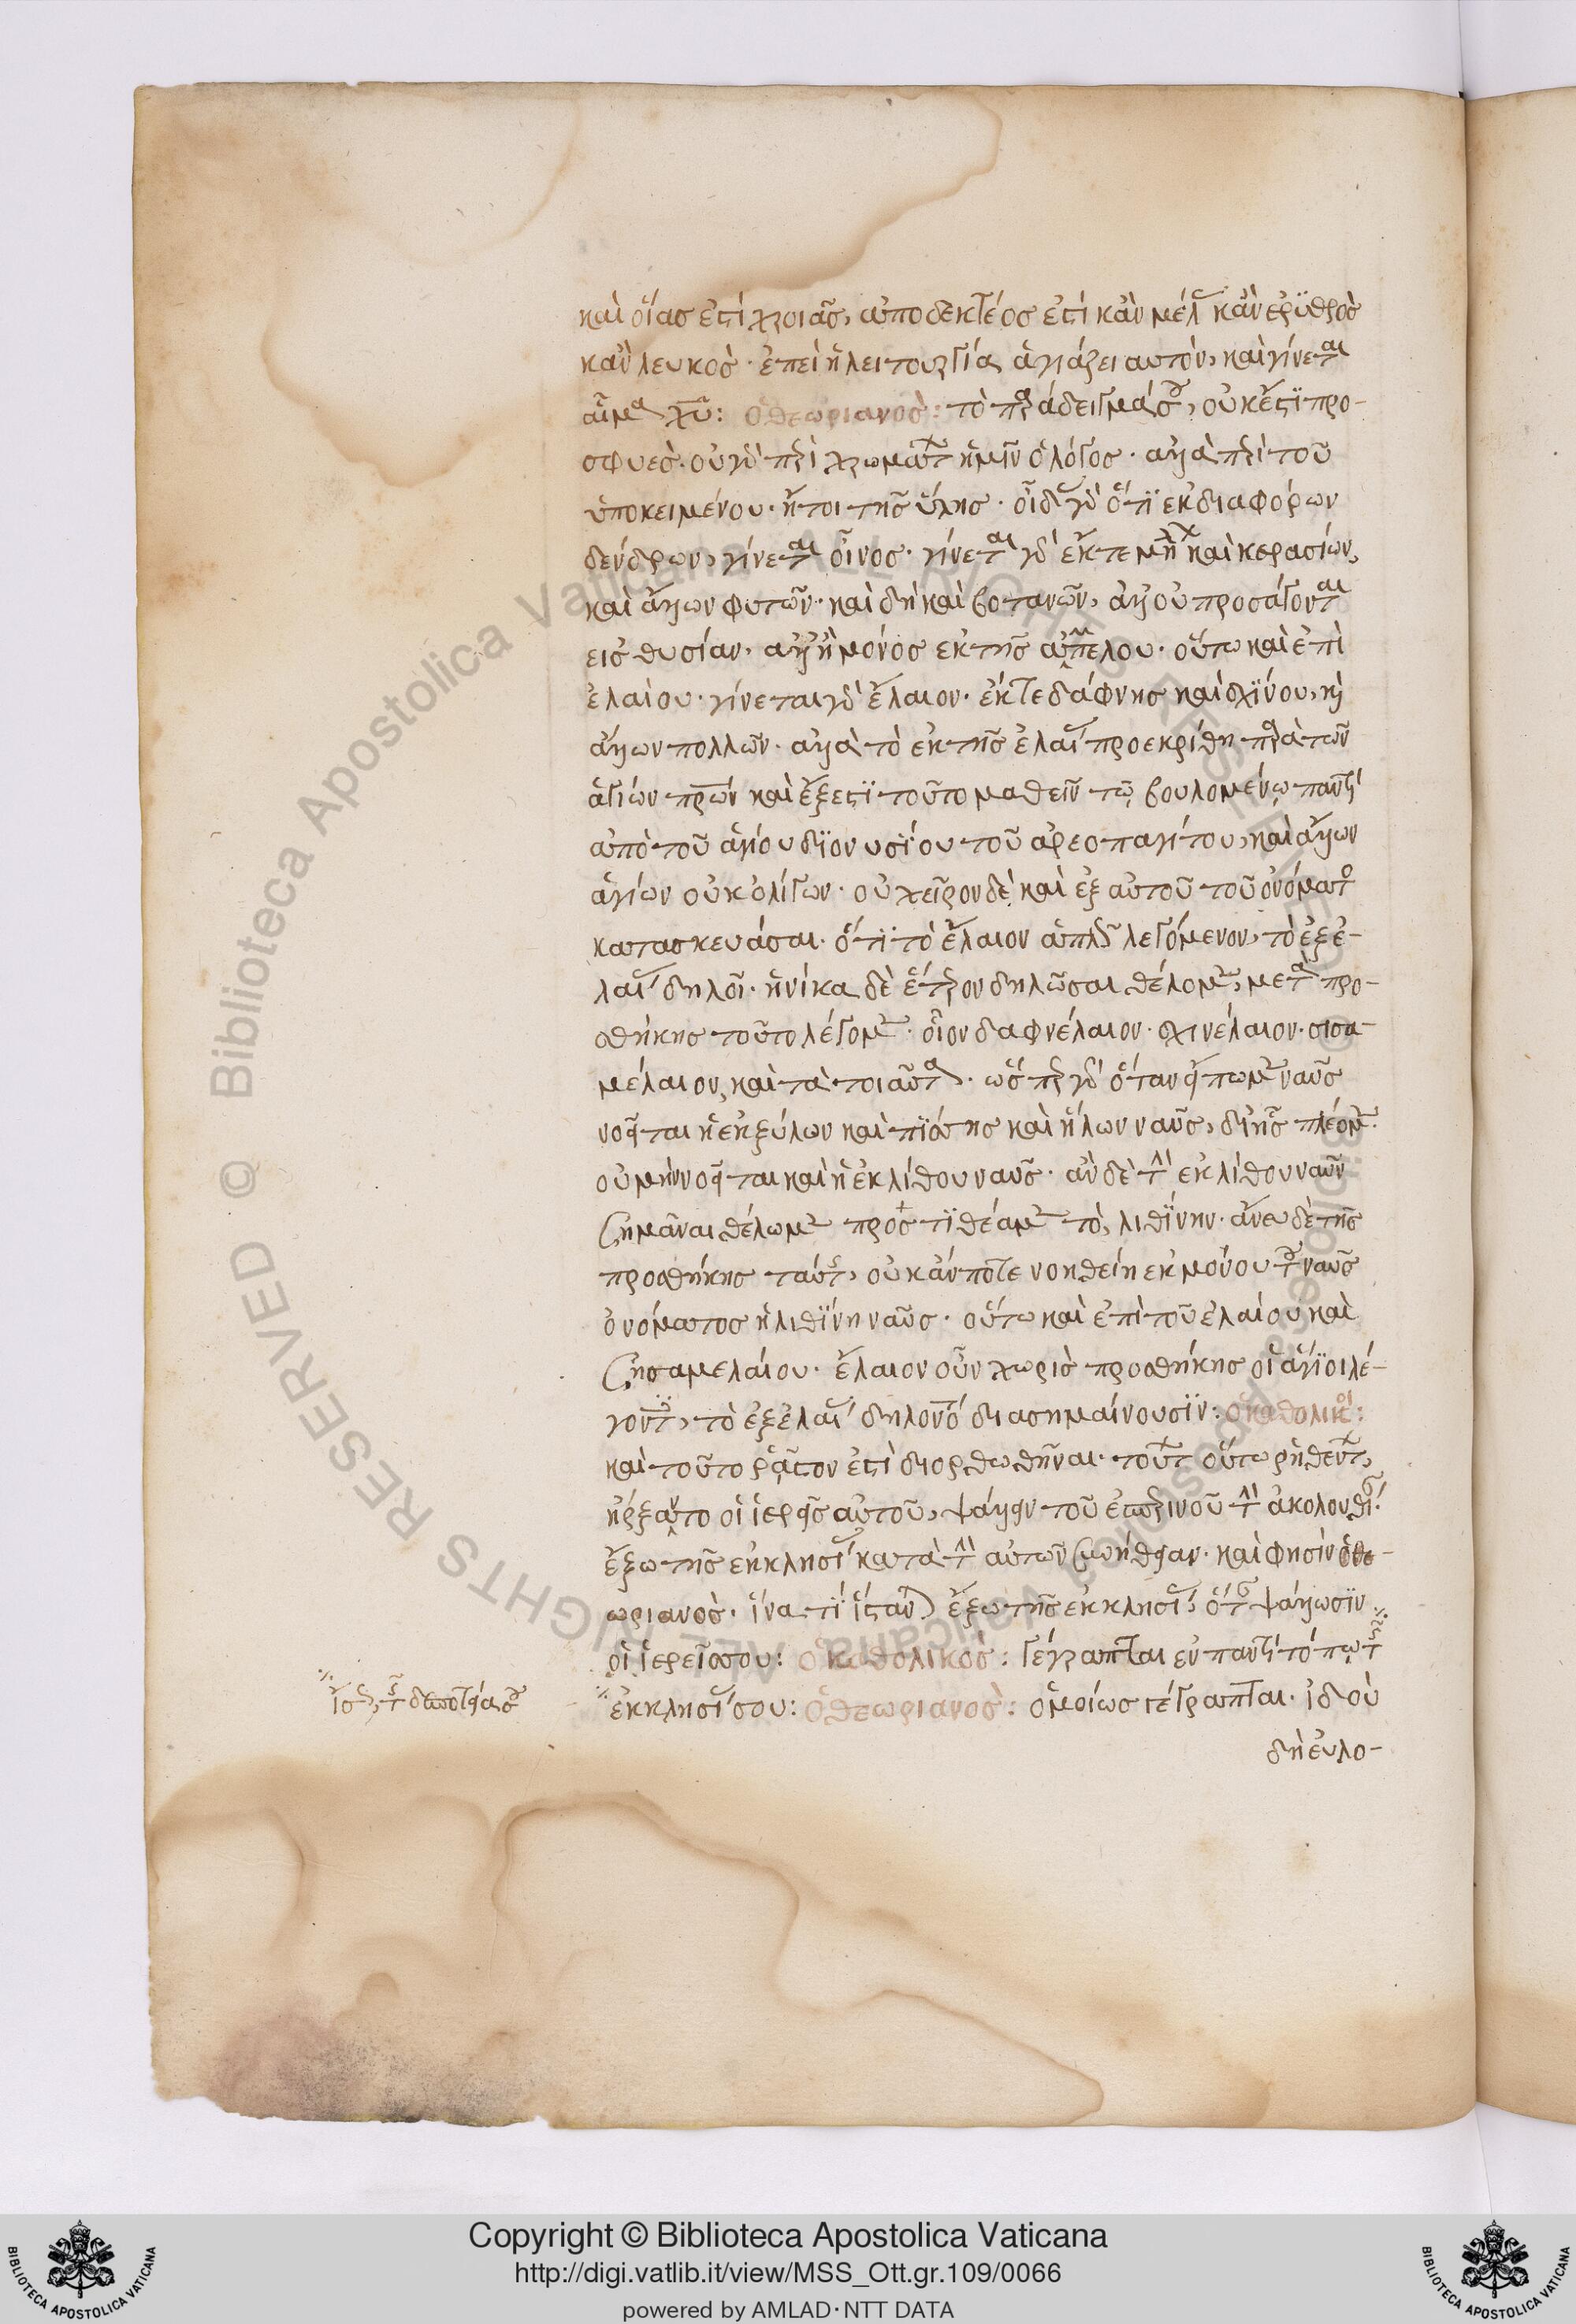 καὶ οἵας ἐστὶ χροιᾶς, ἀποδεκτέος ἐστὶ κἂν μέλας κἂν ἐρυθρὸς
κἂν λευκὸς· ἐπεὶ ἡ λειτουργία ἁγιάζει αυτὸν, καὶ γίνεται
αἷμα χυ: ὁ θεωριανὸς: τὸ παράδειγμά σου, οὐκ ἔστι προ-
σφυὲς· οὐ γὰρ περὶ χρωμάτων ἡμῖν ὁ λόγος· ἀλλὰ περὶ τοῦ
ὑποκειμένου· ἤτοι τῆς ὕλης· οἶδας γὰρ ὅτι ἐκ διαφόρων
δένδρων, γίνεται οἶνος· γίνεται γὰρ ἔκ τε μήλων καὶ κερασίων,
καὶ ἄλλων φυτῶν· καὶ δὴ καὶ βοτανῶν, ἀλλ' οὐ προσάγονται
εἰς θυσίαν, ἀλλ' ἢ μόνος ἐκ τῆς ἀμπέλου· οὕτω καὶ ἐπὶ
ἐλαίου· γίνεται γὰρ ἔλαιον· ἔκ τε δάφνης καὶ σχίνου, καὶ
ἄλλων πολλῶν· ἀλλὰ τὸ ἐκ τῆς ἐλαίας προεκρίθη παρὰ τῶν
ἁγίων πρων καὶ ἔξεστι τοῦτο μαθεῖν τῷ βουλομένῳ παντὶ
ἀπὸ τοῦ ἁγίου διονυσίου τοῦ ἀρεοπαγίτου, καὶ ἄλλων
ἁγίων οὐκ ὀλίγων· οὐ χεῖρον δὲ καὶ ἐξ αὐτοῦ τοῦ ὀνόματος
κατασκευάσαι· ὅτι τὸ ἔλαιον ἁπλῶς λεγόμενον, τὸ ἐξ ἐ-
λαίας δηλοῖ· ἡνίκα δὲ ἕτερον δηλῶσαι θέλομεν, μετὰ προ-
σθήκης τοῦτο λέγομεν· οἷον δαφνέλαιον· σχινέλαιον· σισα-
μέλαιον, καὶ τὰ τοιαῦτα· ὥσπερ γὰρ ὅταν εἴπωμεν ναῦς
νοεῖται ἡ ἐκ ξύλων καὶ πίσσης καὶ ἥλων ναῦς, δι' ἧς πλέομεν·
οὐ μὴν νοεῖται καὶ ἡ ἐκ λίθου ναῦς· ἂν δὲ τὴν ἐκ λίθου ναῦν
σημᾶναι θέλωμεν προστιθέαμεν τὸ, λιθίνην· ἄνευ δὲ τῆς
προσθήκης ταύτης, οὐκ ἄν ποτε νοηθείη ἐκ μόνου τοῦ ναῦς
ὀνόματος ἡ λιθίνη ναῦς· οὕτω καὶ ἐπὶ τοῦ ἐλαίου καὶ
σησαμελαίου· ἔλαιον οὖν χωρὶς προσθήκης οἱ ἅγιοι λέ-
γοντες, τὸ ἐξ ἐλαίας δηλονότι διασημαίνουσιν: ὁ καθολικός:
καὶ τοῦτο ῥᾷστον ἐστὶ διορθωθῆναι· τούτων οὕτω ῥηθέντων,
ἤρξαντο οἱ ἱερεῖς αὐτοῦ, ψάλλειν τοῦ ἑωθινοῦ τὴν ἀκολουθίαν
ἔξω τῆς ἐκκλησίας κατὰ τὴν αὐτῶν συνήθειαν· καὶ φησὶν ὁ θε-
ωριανὸς· ἵνα τί ἵστανται ἔξω τῆς ἐκκλησίας, ὅταν ψάλλωσιν
οἱ ἱερεῖς σου: ὁ καθολικός: γέγραπται ἐν παντὶ τόπῳ τῆς
ἐκκλησίας σου: ὁ θεωριανὸς: ὁμοίως γέγραπται· ἰδοὺ
δὴ εὐλο-
ἴσως, τῆς δεσποτείας
Copyright © Biblioteca Apostolica Vaticana
http://digi.vatlib.it/view/MSS_Ott.gr.109/0066
powered by AMLAD·NTT DATA
BIBLIOTECA APOSTOLICA VATICANA
BIBLIOTECA APOSTOLICA VATICANA
© Biblioteca Apostolica Vaticana ALL RIGHTS RESERVED